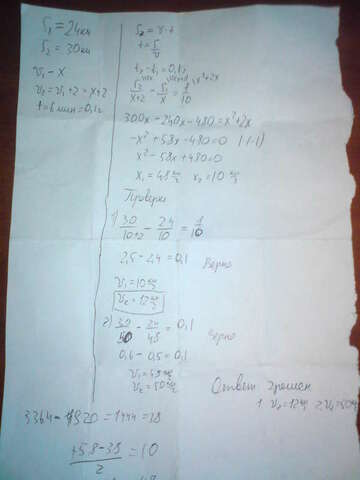 S₁ = 24км
S₂ = 30км
v₁ - x
v₂ = v₁ + 2 = x+2
t = 6 мин = 0,1ч
S = v·t
t = S/v
t₂ - t₁ = 0,1ч
S₂/x+2 - S₁/x = 1/10
300x - 240x - 480 = x²+2x
-x² + 58x - 480 = 0 (·(-1))
x² - 58x + 480 = 0
x₁ = 48 км/ч x₂ = 10 км/ч
Проверка
1) 30/10+2 - 24/10 = 1/10
2,5 - 2,4 = 0,1 Верно
v₁ = 10 км/ч
v₂ = 12 км/ч
2) 30/50 - 24/48 = 0,1
Верно
0,6 - 0,5 = 0,1
v₁ = 48 км/ч
v₂ = 50 км/ч
Ответ
1. v₂ = 12 км/ч 2. v₂ = 50 км/ч
3364 - 1920 = 1444 = 38
+58-38/2 = 10